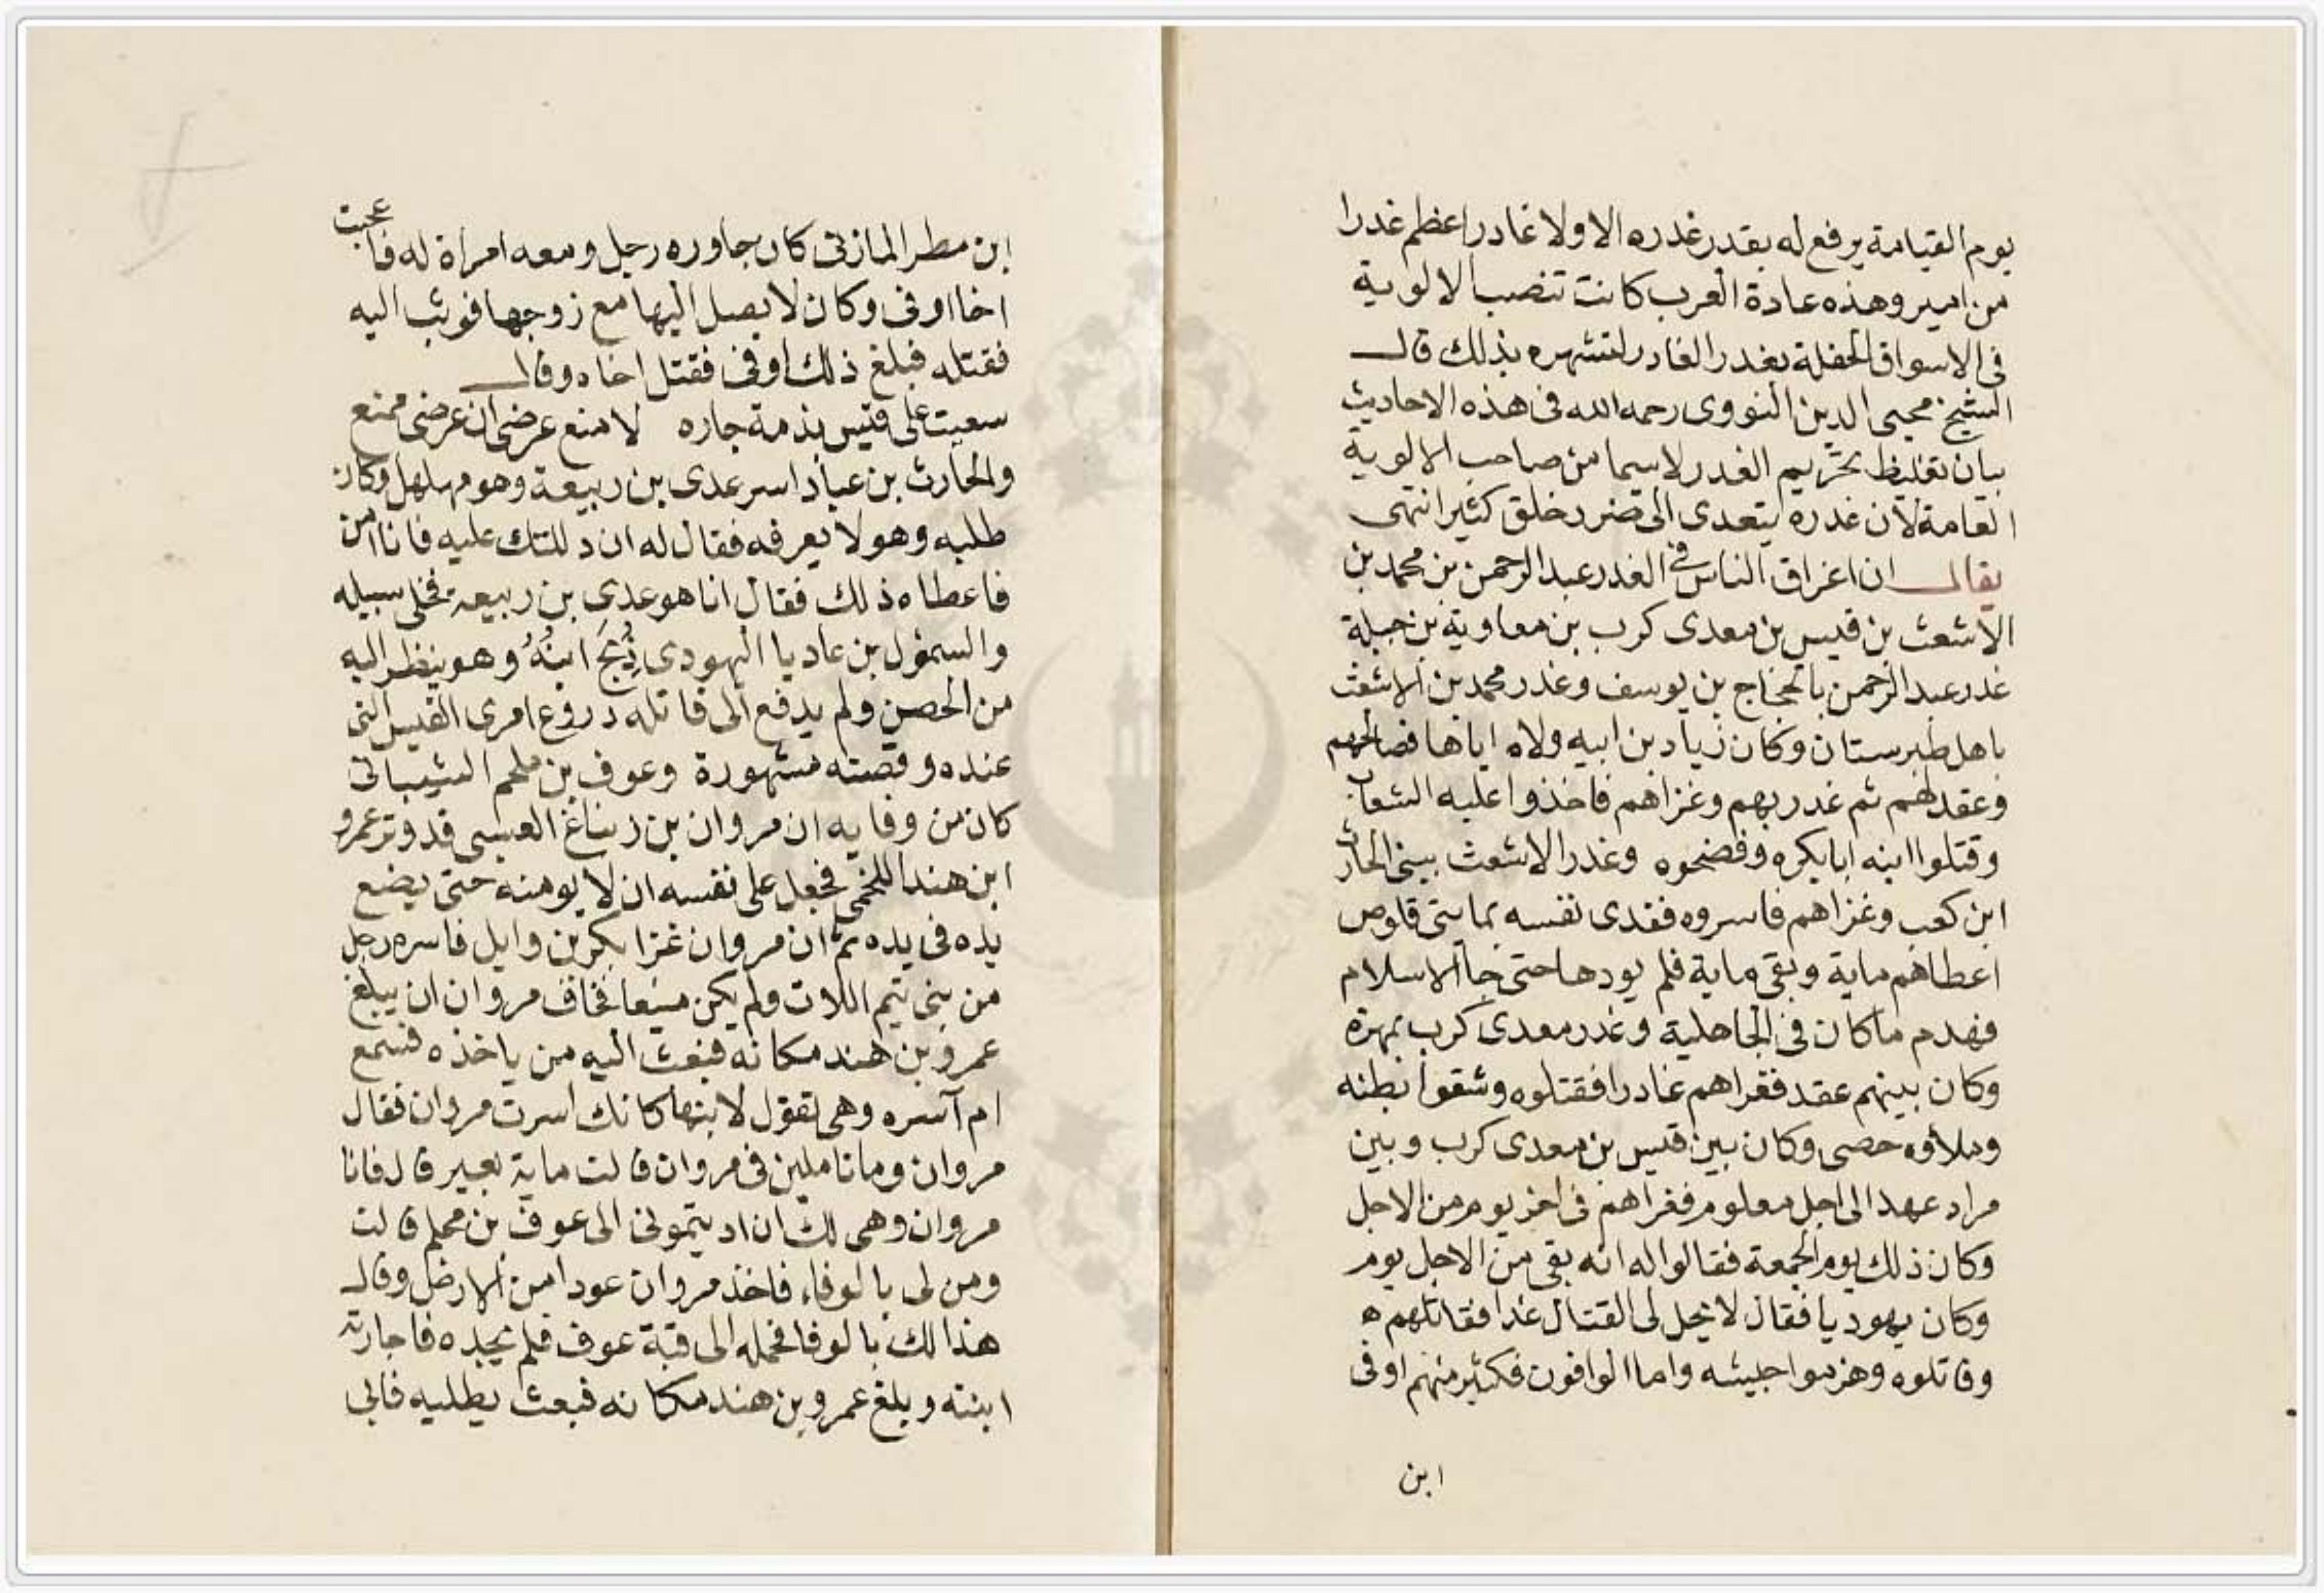 يوم القيامة يرفع له بقدر غدره الا ولا غادر اعظم غدرا
من امير وهذه عادة العرب كانت تنصب الالوية
فى الاسواق الحفلة بغدر الغادر لتشهره بذلك قال
الشيخ محيى الدين النووى رحمه الله فى هذه الاحاديث
بيان تغليظ تحريم الغدر لاسيما من صاحب الالوية
العامة لان غدره يتعدى الى ضرر خلق كثير انتهى
يقال ان اغراق الناس فى الغدر عبد الرحمن بن محمد بن
الاشعث بن قيس بن معدى كرب بن معاوية بن جبلة
غدر عبد الرحمن بالحجاج بن يوسف وغدر محمد بن الاشعث
باهل طبرستان وكان زياد بن ابيه ولاه اياها فصالحهم
وعقد لهم ثم غدر بهم وغزاهم فاخذوا عليه الشعاب
وقتلوا ابنه ابا بكره وفضحوه وغدر الاشعث ببنى الحارث
ابن كعب وغزاهم فاسروه ففدى نفسه بمايتى قلوص
اعطاهم ماية وبقى ماية فلم يودها حتى جا الاسلام
فهدم ما كان فى الجاهلية وغدر معدى كرب بمهرة
وكان بينهم عقد فغزاهم غادرا فقتلوه وشقوا بطنه
وملاوه حصى وكان بين قيس بن معدى كرب وبين
مراد عهدا الى اجل معلوم فغزاهم فى اخر يوم من الاجل
وكان ذلك يوم الجمعة فقالوا له انه بقى من الاجل يوم
وكان يهوديا فقال لا يحل لى القتال غدا فقاتلهم ه
وقاتلوه وهزموا جيشه واما الوافون فكثير منهم اوفى
ابن
ابن مطر المازنى كان جاوره رجل ومعه امراة له فاعجبت
اخا اوفى وكان لا يصل اليها مع زوجها فوثب اليه
فقتله فبلغ ذلك اوفى فقتل اخاه وقال
سعيت على قيس بذمة جاره لامنع عرضى ان عرضى ممنع
والحارث بن عباد اسر عدى بن ربيعة وهو مهلهل وكان
طلبه وهو لا يعرفه فقال له ان دللتك عليه فانا امن
فاعطاه ذلك فقال انا هو عدى بن ربيعة فخلى سبيله
والسمؤل بن عاديا اليهودى ذُبِحَ ابنُهُ وهو ينظر اليه
من الحصن ولم يدفع الى قاتله دروع امرى القيس التى
عنده وقصته مشهورة وعوف بن ملحم الشيبانى
كان من وفايه ان مروان بن زنباغ العبسى قد وتر عمرو
ابن هند اللخمى فجعل على نفسه ان لا يومنه حتى يضع
يده فى يده ثم ان مروان غزا بكر بن وايل فاسره رجل
من بنى تيم اللات ولم يكن فخاف مروان ان يبلغ
عمرو بن هند مكانه فبعث اليه من ياخذه فسمع
ام آسره وهى تقول لابنها كانك اسرت مروان فقال
مروان وما تاملين فى مروان قالت ماية بعير قال فانا
مروان وهى لك ان اديتمونى الى عوف بن محلم قالت
ومن لى بالوفاء فاخذ مروان عودا من الارض وقال
هذا لك بالوفا فحمله الى قبة عوف فلم يجده فاجارته
ابنته وبلغ عمرو بن هند مكانه فبعث يطلبه فابى